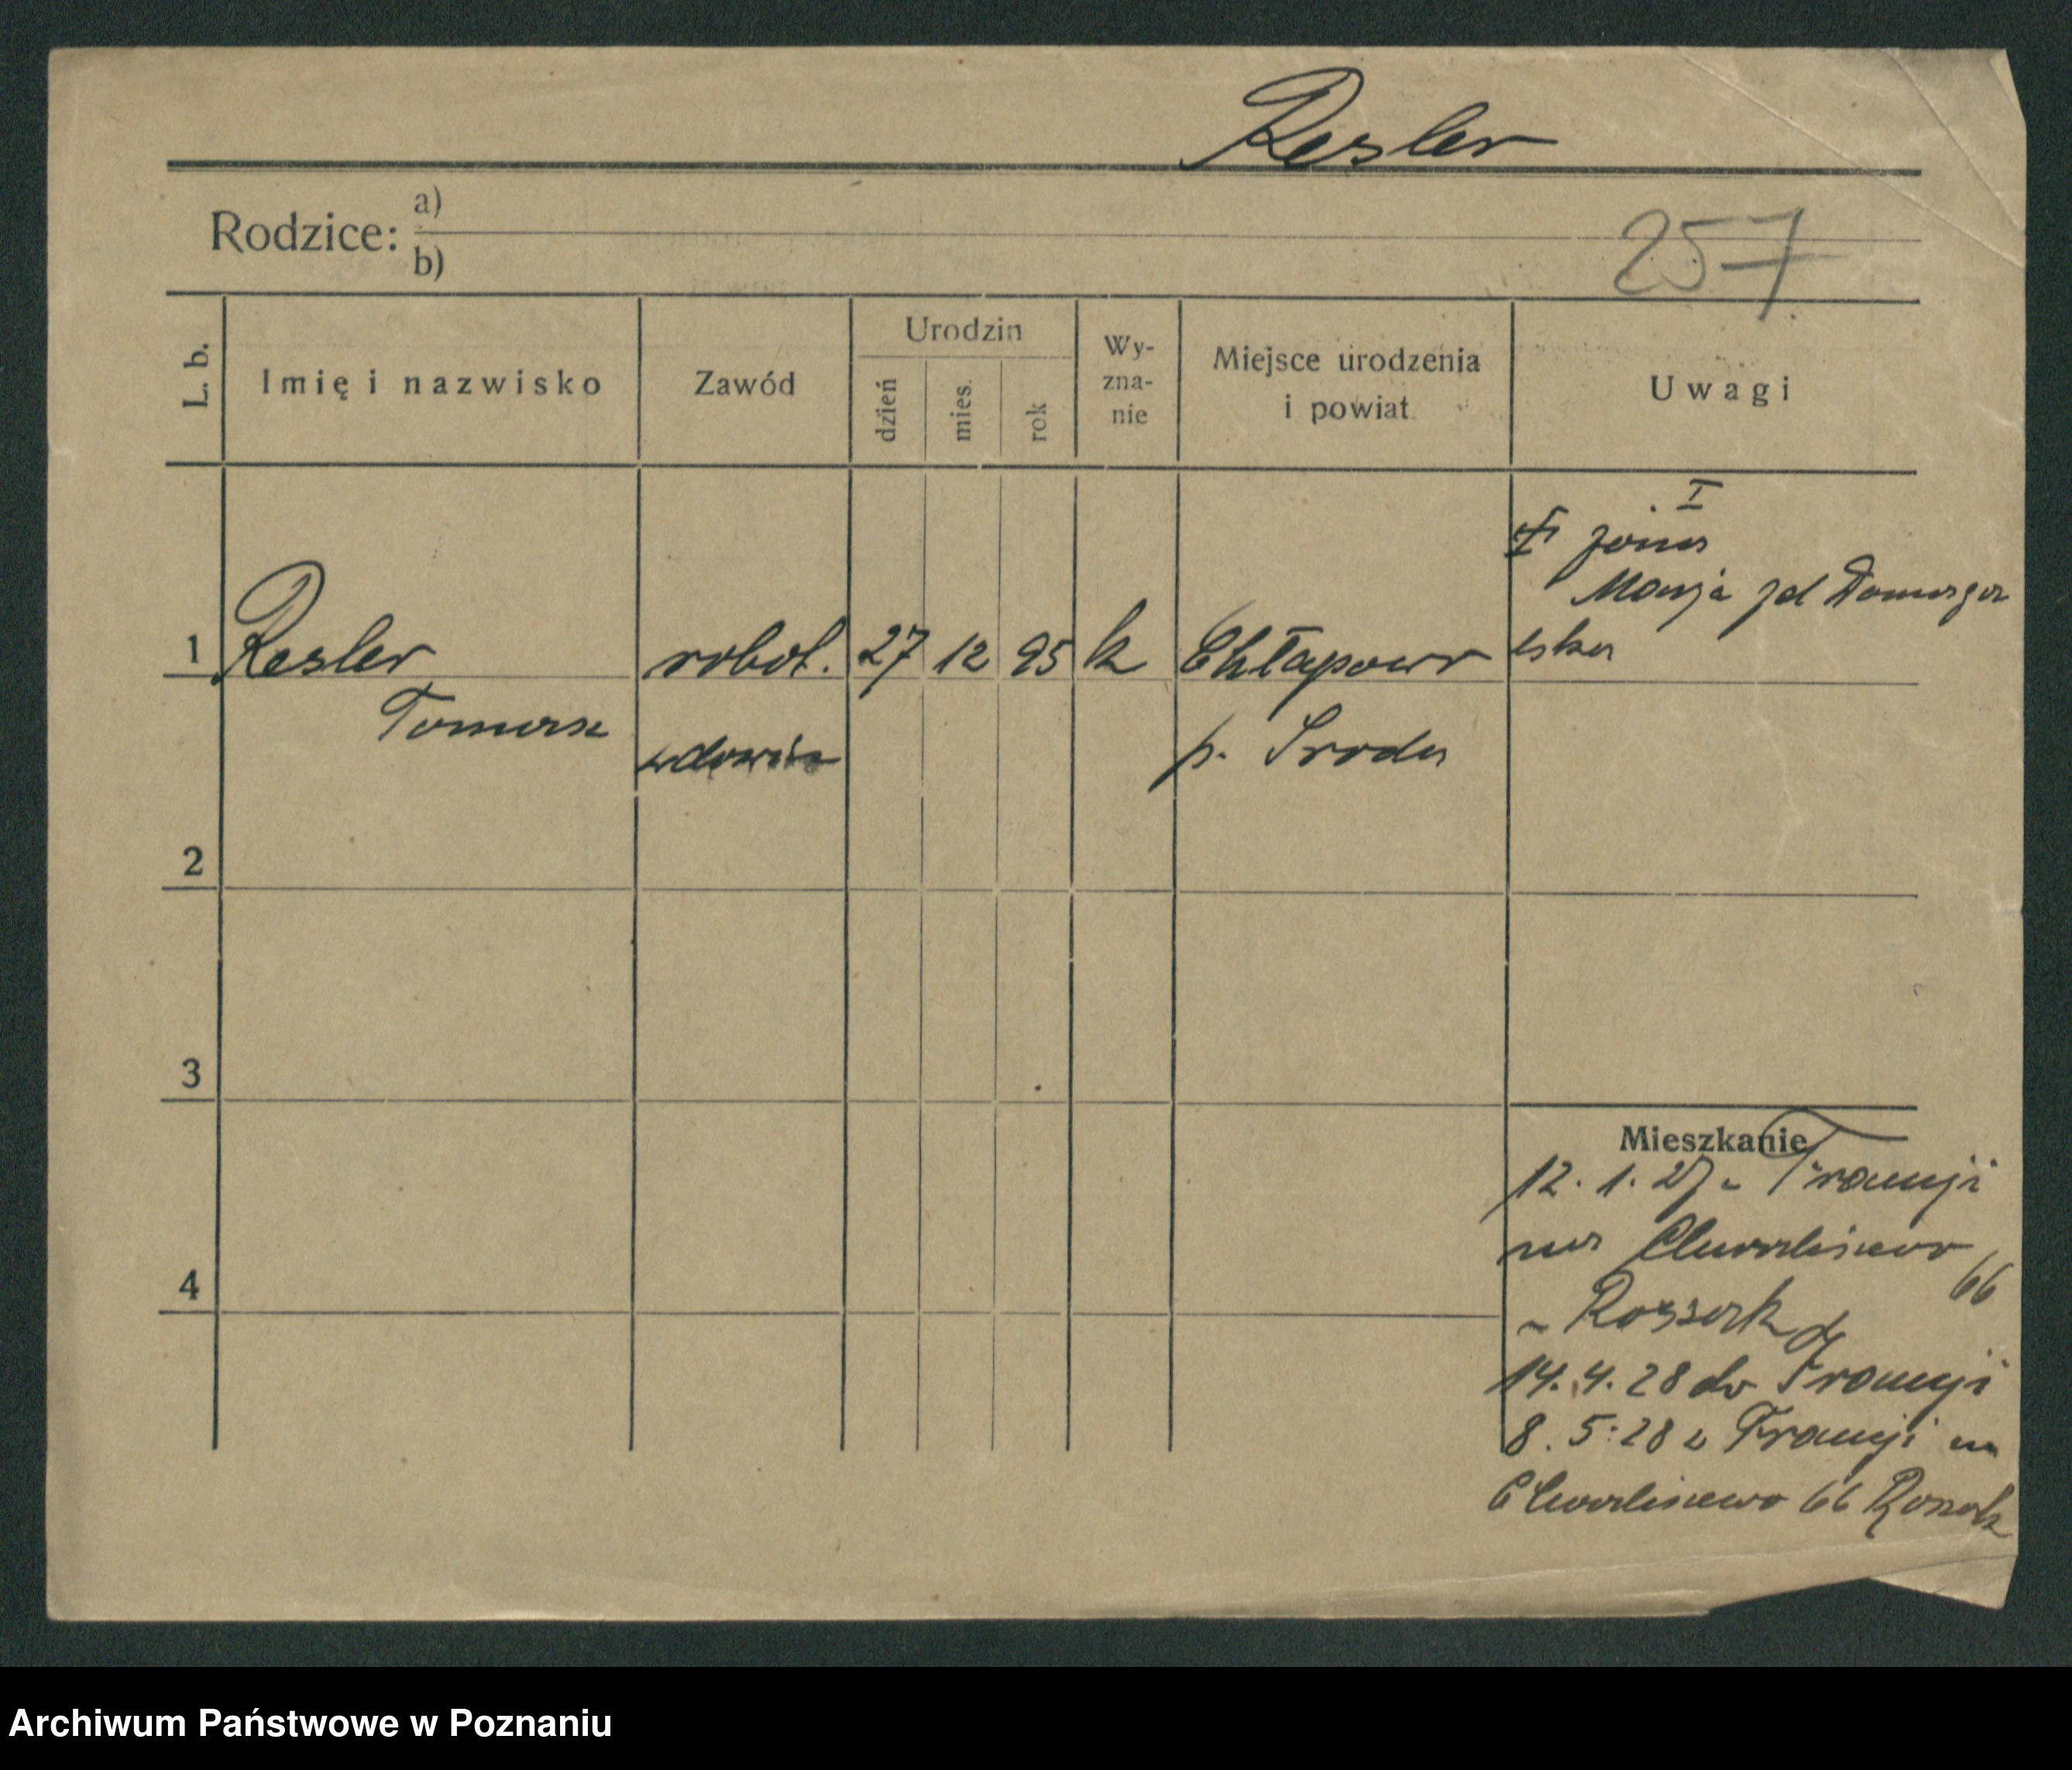 Resler
Rodzice: a)
b)
257
L. b.
Imię i nazwisko
Zawód
Urodzin
dzień
mies.
rok
Wy-
zna-
nie
Miejsce urodzenia
i powiat
Uwagi
I
żona
Marja
ska
1 Resler robot. 27 12 95 k Chłapowo
Tomasz
wdowiec
p. Środa
2
3
4
Mieszkanie
12. 1. 27 z Francji
na Chwaliszewo
66
14. 4. 28 do Francji
8. 5. 28 z Francji na
Chwaliszewo 66
Archiwum Państwowe w Poznaniu